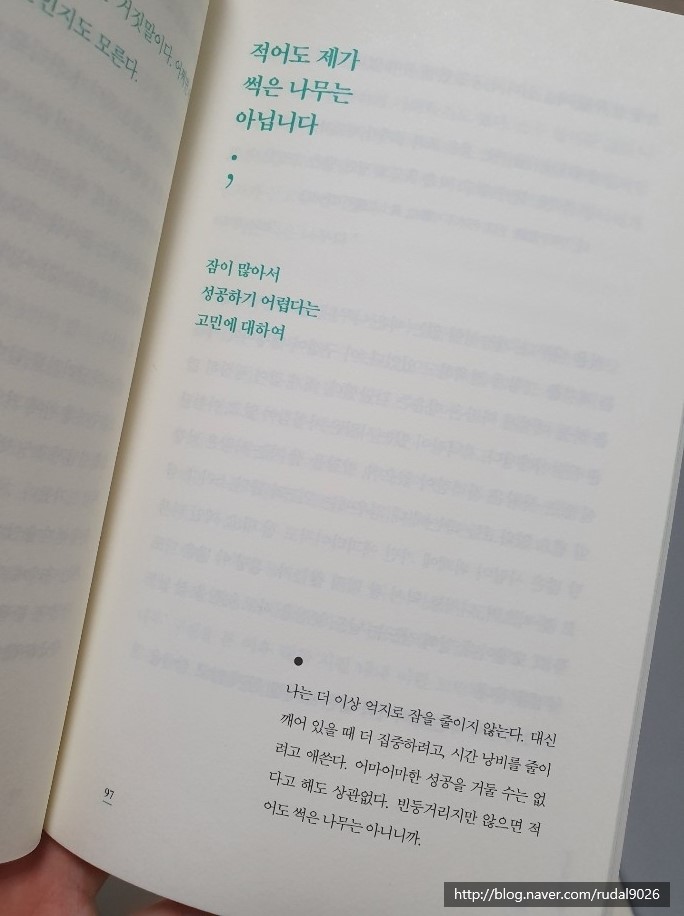 거짓말이다.
지도 모른다.
적어도 제가
썩은 나무는
아닙니다
;
잠이 많아서
성공하기 어렵다는
고민에 대하여
●
나는 더 이상 억지로 잠을 줄이지 않는다. 대신
깨어 있을 때 더 집중하려고, 시간 낭비를 줄이
려고 애쓴다. 어마어마한 성공을 거둘 수는 없
다고 해도 상관없다. 빈둥거리지만 않으면 적
어도 썩은 나무는 아니니까.
97
http://blog.naver.com/rudal9026